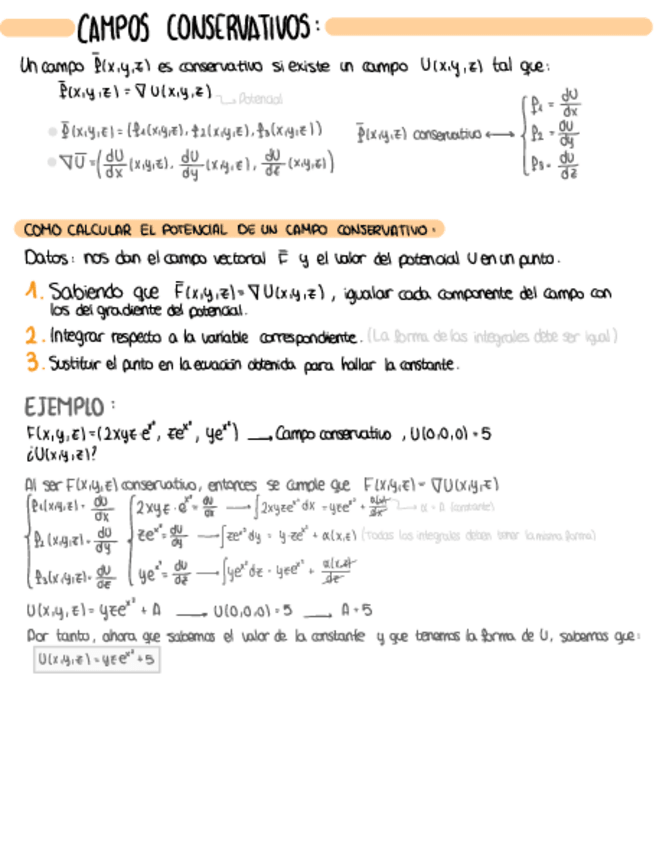 CAMPOS CONSERVATIVOS:
Un campo f̄(x,y,z) es conservativo si existe un campo U(x,y,z) tal que:
f̄(x,y,z) = ∇U(x,y,z) → Potencial
f̄(x,y,z) = (f1(x,y,z), f2(x,y,z), f3(x,y,z))
∇Ū = (dU/dx (x,y,z), dU/dy (x,y,z), dU/dz (x,y,z))
f̄(x,y,z) conservativo ↔ { f1 = dU/dx
f2 = dU/dy
f3 = dU/dz
COMO CALCULAR EL POTENCIAL DE UN CAMPO CONSERVATIVO:
Datos: nos dan el campo vectorial F̄ y el valor del potencial U en un punto.
1. Sabiendo que F̄(x,y,z) = ∇U(x,y,z), igualar cada componente del campo con
los del gradiente del potencial.
2. Integrar respecto a la variable correspondiente. (La forma de las integrales debe ser igual)
3. Sustituir el punto en la ecuación obtenida para hallar la constante.
EJEMPLO:
F(x,y,z) = (2xyz·e^x², ze^x², ye^x²) → Campo conservativo, U(0,0,0) = 5
¿U(x,y,z)?
Al ser F(x,y,z) conservativo, entonces se cumple que F(x,y,z) = ∇U(x,y,z)
f1(x,y,z) = dU/dx { 2xyz·e^x² = dU/dx → ∫2xyze^x² dx = yze^x² +
f2(x,y,z) = dU/dy { ze^x² = dU/dy → ∫ze^x² dy = y·ze^x² + α(x,z) (Todas las integrales deben tener la misma forma)
f3(x,y,z) = dU/dz { ye^x² = dU/dz → ∫ye^x² dz = yze^x² +
U(x,y,z) = yze^x² + A → U(0,0,0) = 5 → A = 5
Por tanto, ahora que sabemos el valor de la constante y que tenemos la forma de U, sabemos que:
U(x,y,z) = yze^x² + 5